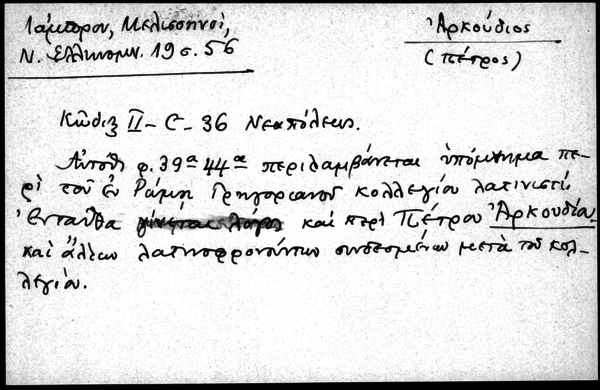 Λάμπρου, Μελισσηνοί,
Ν. Ελληνομν. 19 σ. 56
Ἀρκούδιος
(Πέτρος)
Κῶδιξ II-C-36 Νεαπόλεως.
Αὐτόθι φ. 39α 44α περιλαμβάνεται ὑπόμνημα πε-
ρὶ τοῦ ἐν Ρώμῃ Γρηγοριανοῦ κολλεγίου λατινιστί
Ἐνταῦθα γίνεται λόγος καὶ περὶ Πέτρου Ἀρκουδίου
καὶ ἄλλων λατινοφρονούντων συνδεομένων μετὰ τοῦ κολ-
λεγίου.